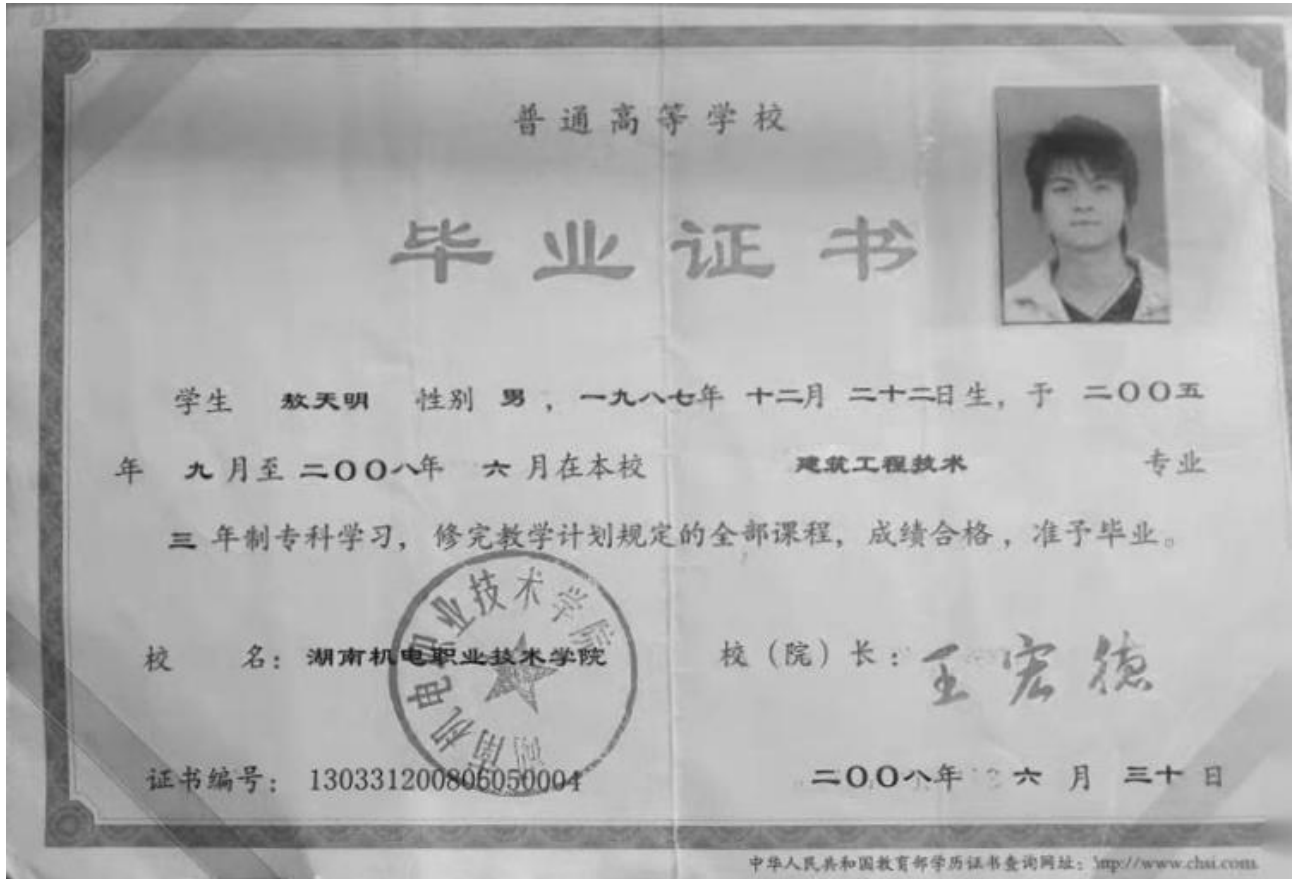 普通高等学校
毕业证书
学生 敖天明 性别 男，一九八七年 十二月 二十二日生，于 二〇〇五
年 九月至 二〇〇八年 六月在本校 建筑工程技术 专业
三 年制专科学习，修完教学计划规定的全部课程，成绩合格，准予毕业。
湖南机电职业技术学院
校 名：湖南机电职业技术学院 校（院）长：王宏德
证书编号：130331200806050004 二〇〇八年 六 月 三十 日
中华人民共和国教育部学历证书查询网址：http://www.chsi.com